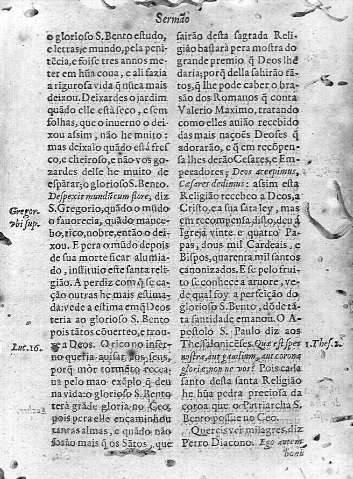 Sermão
o glorioso S. Bento estudo,
e letras, e mundo, pela peni-
tẽcia, e foise tres annos me-
ter em hũa cova, e ali fazia
a rigurosa vida q̃ nũca mais
deixou. Deixardes o jardim
quãdo elle está seco, e sem
folhas, que o inverno o dei-
xou assim, não he muito:
mas deixalo quãdo está fres-
co, e cheiroso, e não vos go-
zardes delle he muito de
espãtar; o glorioso S. Bento.
Despexit mundũ cum flore, diz
S. Gregorio, quãdo o mũdo
o favorecia, quãdo mance-
bo, rico, nobre, então o dei-
xou. E pera o mũdo depois
de sua morte ficar alumia-
do, instituio esta santa reli-
gião. A perdiz com q̃ se ca-
ção outras he mais estima-
da: vede a estima em q̃ Deos
teria ao glorioso S. Bento
pois tãtos cõverteo, e trou-
xe a Deos. O rico no infer-
no queria avisar aos seus,
porq̃ mòr tormẽto rece-
na pelo mao exẽplo q̃ deu
na vida: o glorioso S. Bento
terà grãde gloria no Ceo,
pois pera elle encaminhou
tantas almas, e quãdo não
fossão mais q̃ os Sãtos, que
Gregor.
ubi sup.
Luc. 16.
sairão desta sagrada Reli-
gião bastarà pera mostra do
grande premio q̃ Deos lhe
daria; porq̃ della sahirão tã-
tos, q̃ lhe pode caber o bra-
são dos Romanos q̃ conta
Valerio Maximo, tratando
como elles avião recebido
das mais naçoẽs Deoses q̃
adorarão, e q̃ em recopẽn-
sa lhes derão Cesares, e Em-
peradores; Deos accepimus,
Cæsares dedimus: assim esta
Religião recebeo a Deos, a
Cristo, e a sua sãta ley, mas
em recompensa disto, deu à
Igreja vinte e quatro Pa-
pas, dous mil Cardeais, e
Bispos, quarenta mil santos
canonizados. E se pelo fruito
se conhece a arvore, ve-
de qual soy a perfeição do
glorioso S. Bento, dõde ta-
ta santidade emanou. O A-
postolo S. Paulo diz aos
Thesalonicẽses. Quæ est spes
nostra, aut gaudium, aut corona
gloriæ, non ne vos? Pois cada
santo desta santa Religião
he hũa pedra preciosa da
coroa que o Patriarcha S.
Bento possue no Ceo.
Quereis ver milagres, diz
Petro Diacono. Ego autem
boni
1. Thes. 2.